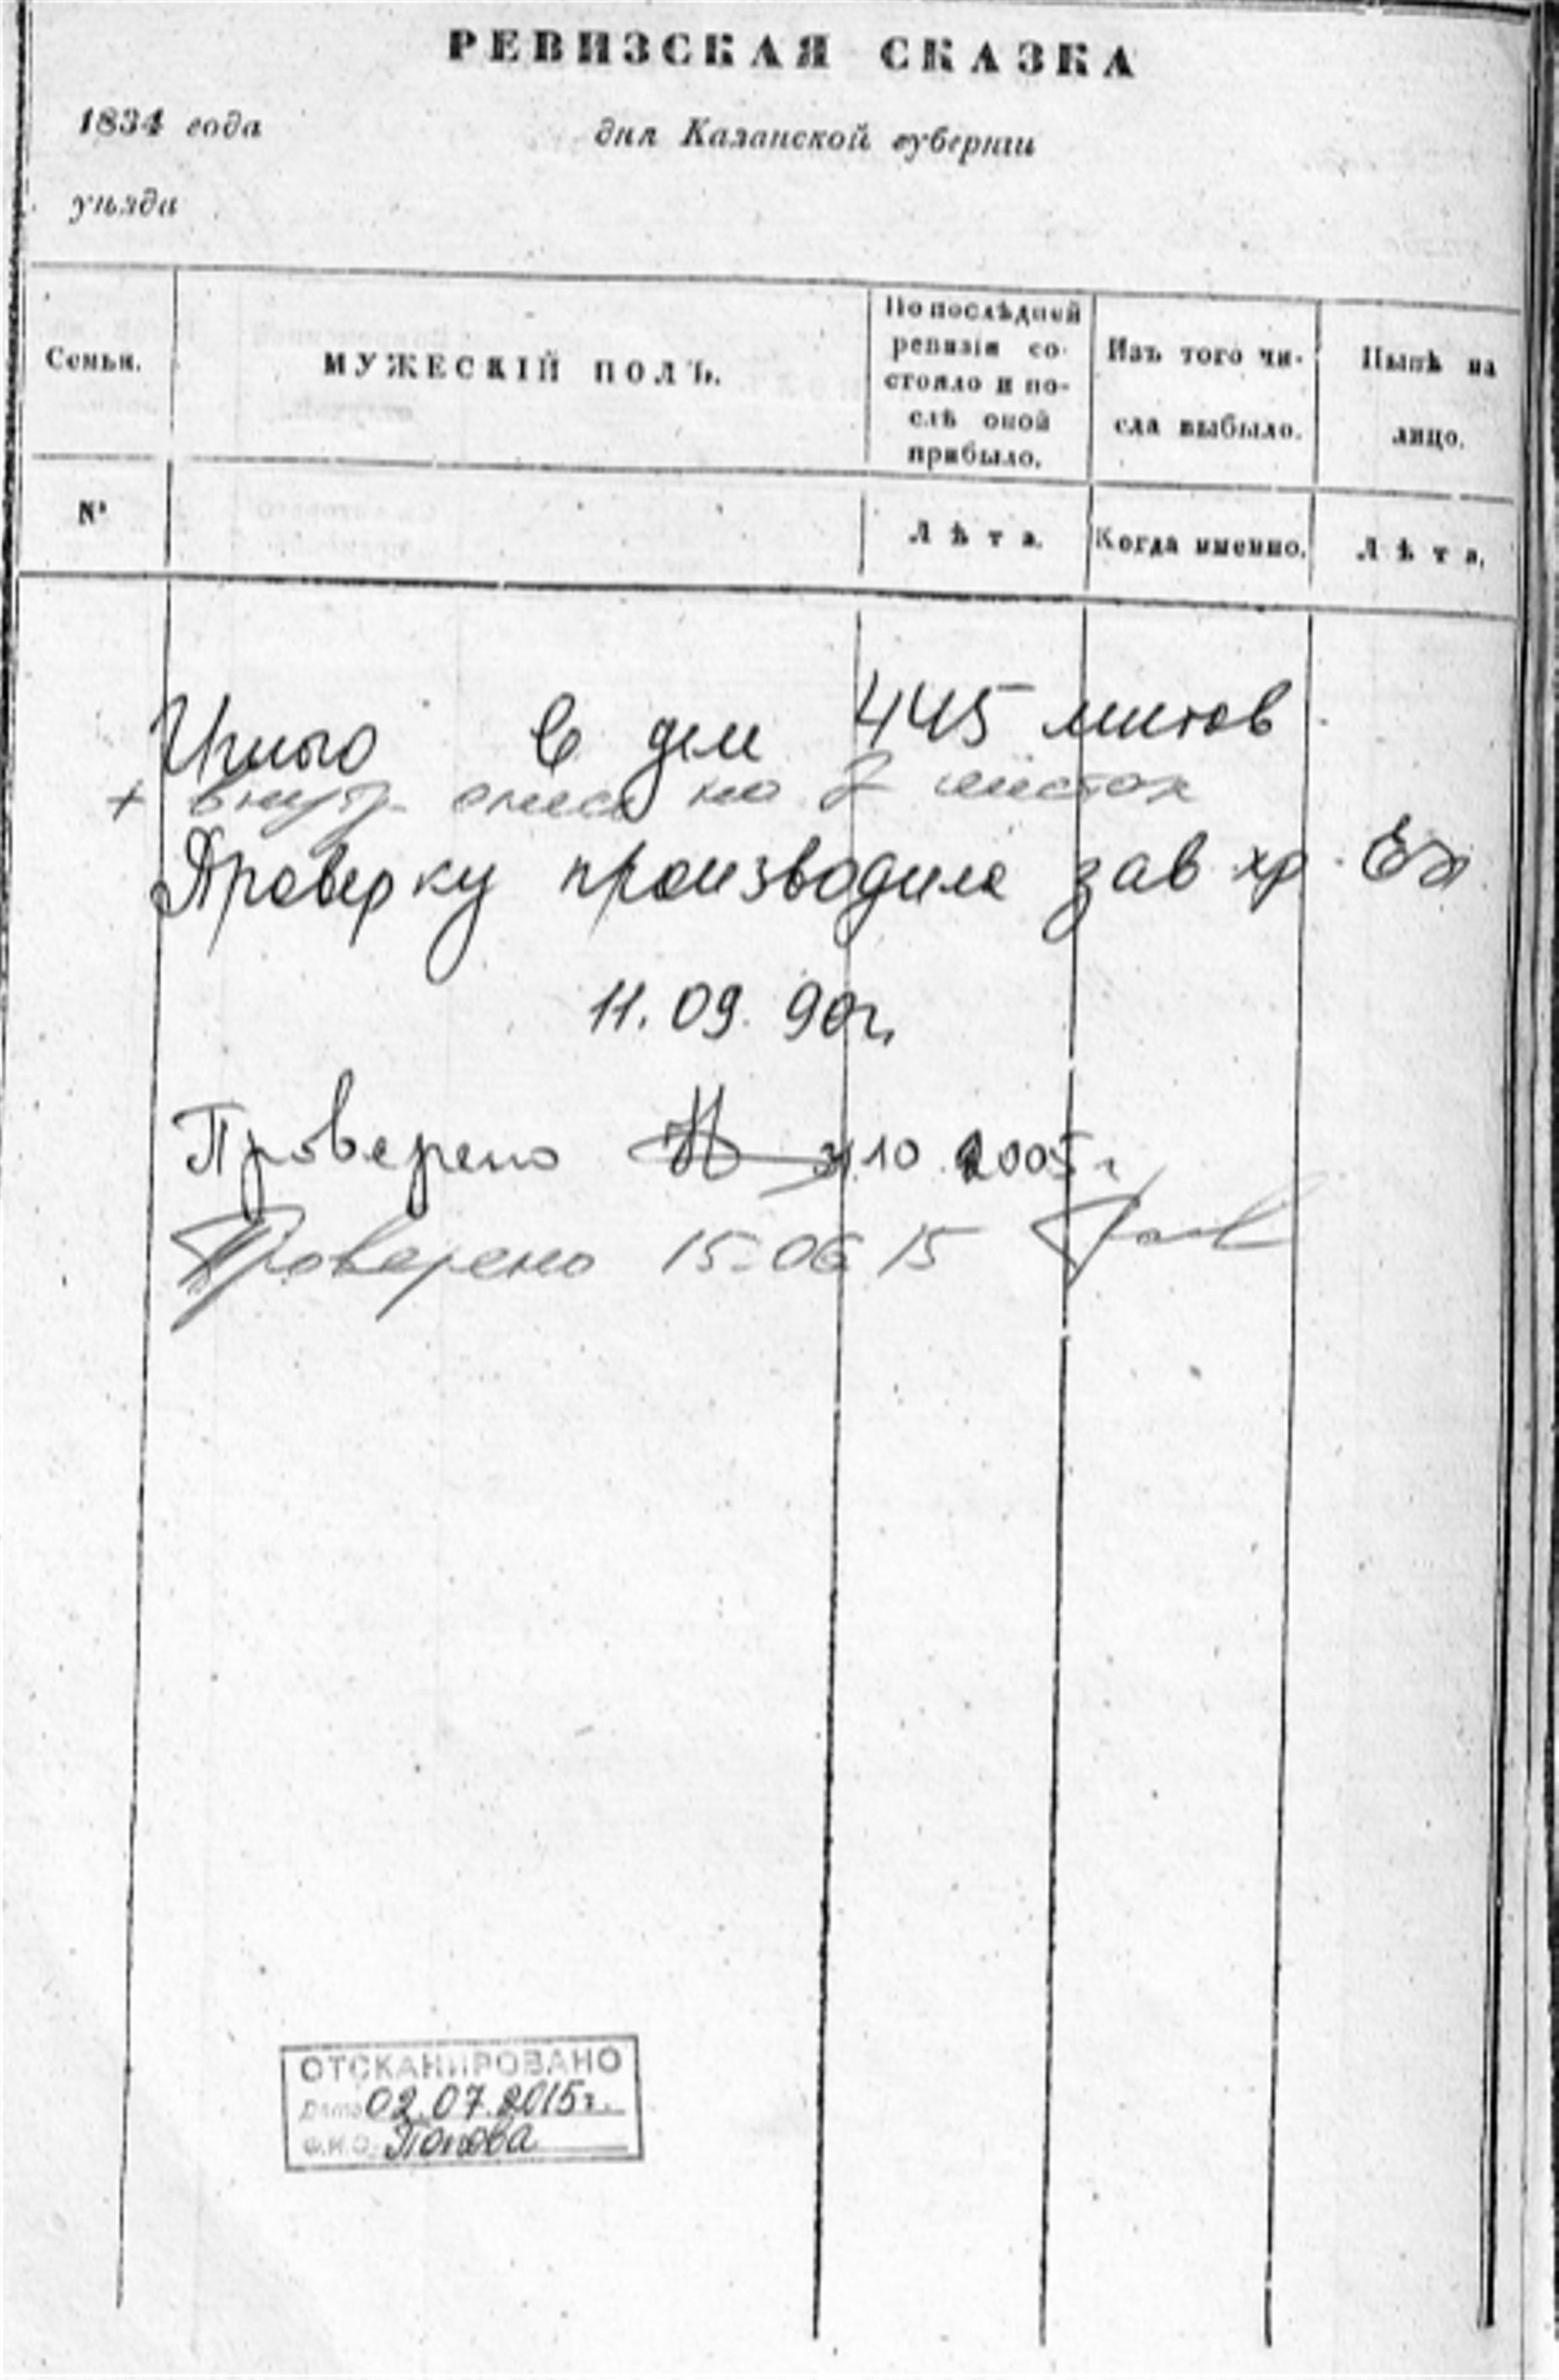 РЕВИЗСКАЯ СКАЗКА
1834 года дня Казанской губернии
уѣзда
Семьи.
МУЖЕСКІЙ ПОЛЪ.
По послѣдней
ревизіи со-
стояло и по-
слѣ оной
прибыло.
Изъ того чи-
сла выбыло.
Нынѣ на
лицо.
№
Лѣта.
Когда именно.
Лѣта.
Итого в деле 445 листов
+ внутр. опись на 2 листах
Проверку производила зав хр.
11.09.90г.
Проверено 10 2005г
Проверено 15-06 15
ОТСКАНИРОВАНО
Дата 02.07.2015г.
Ф.И.О. Попова